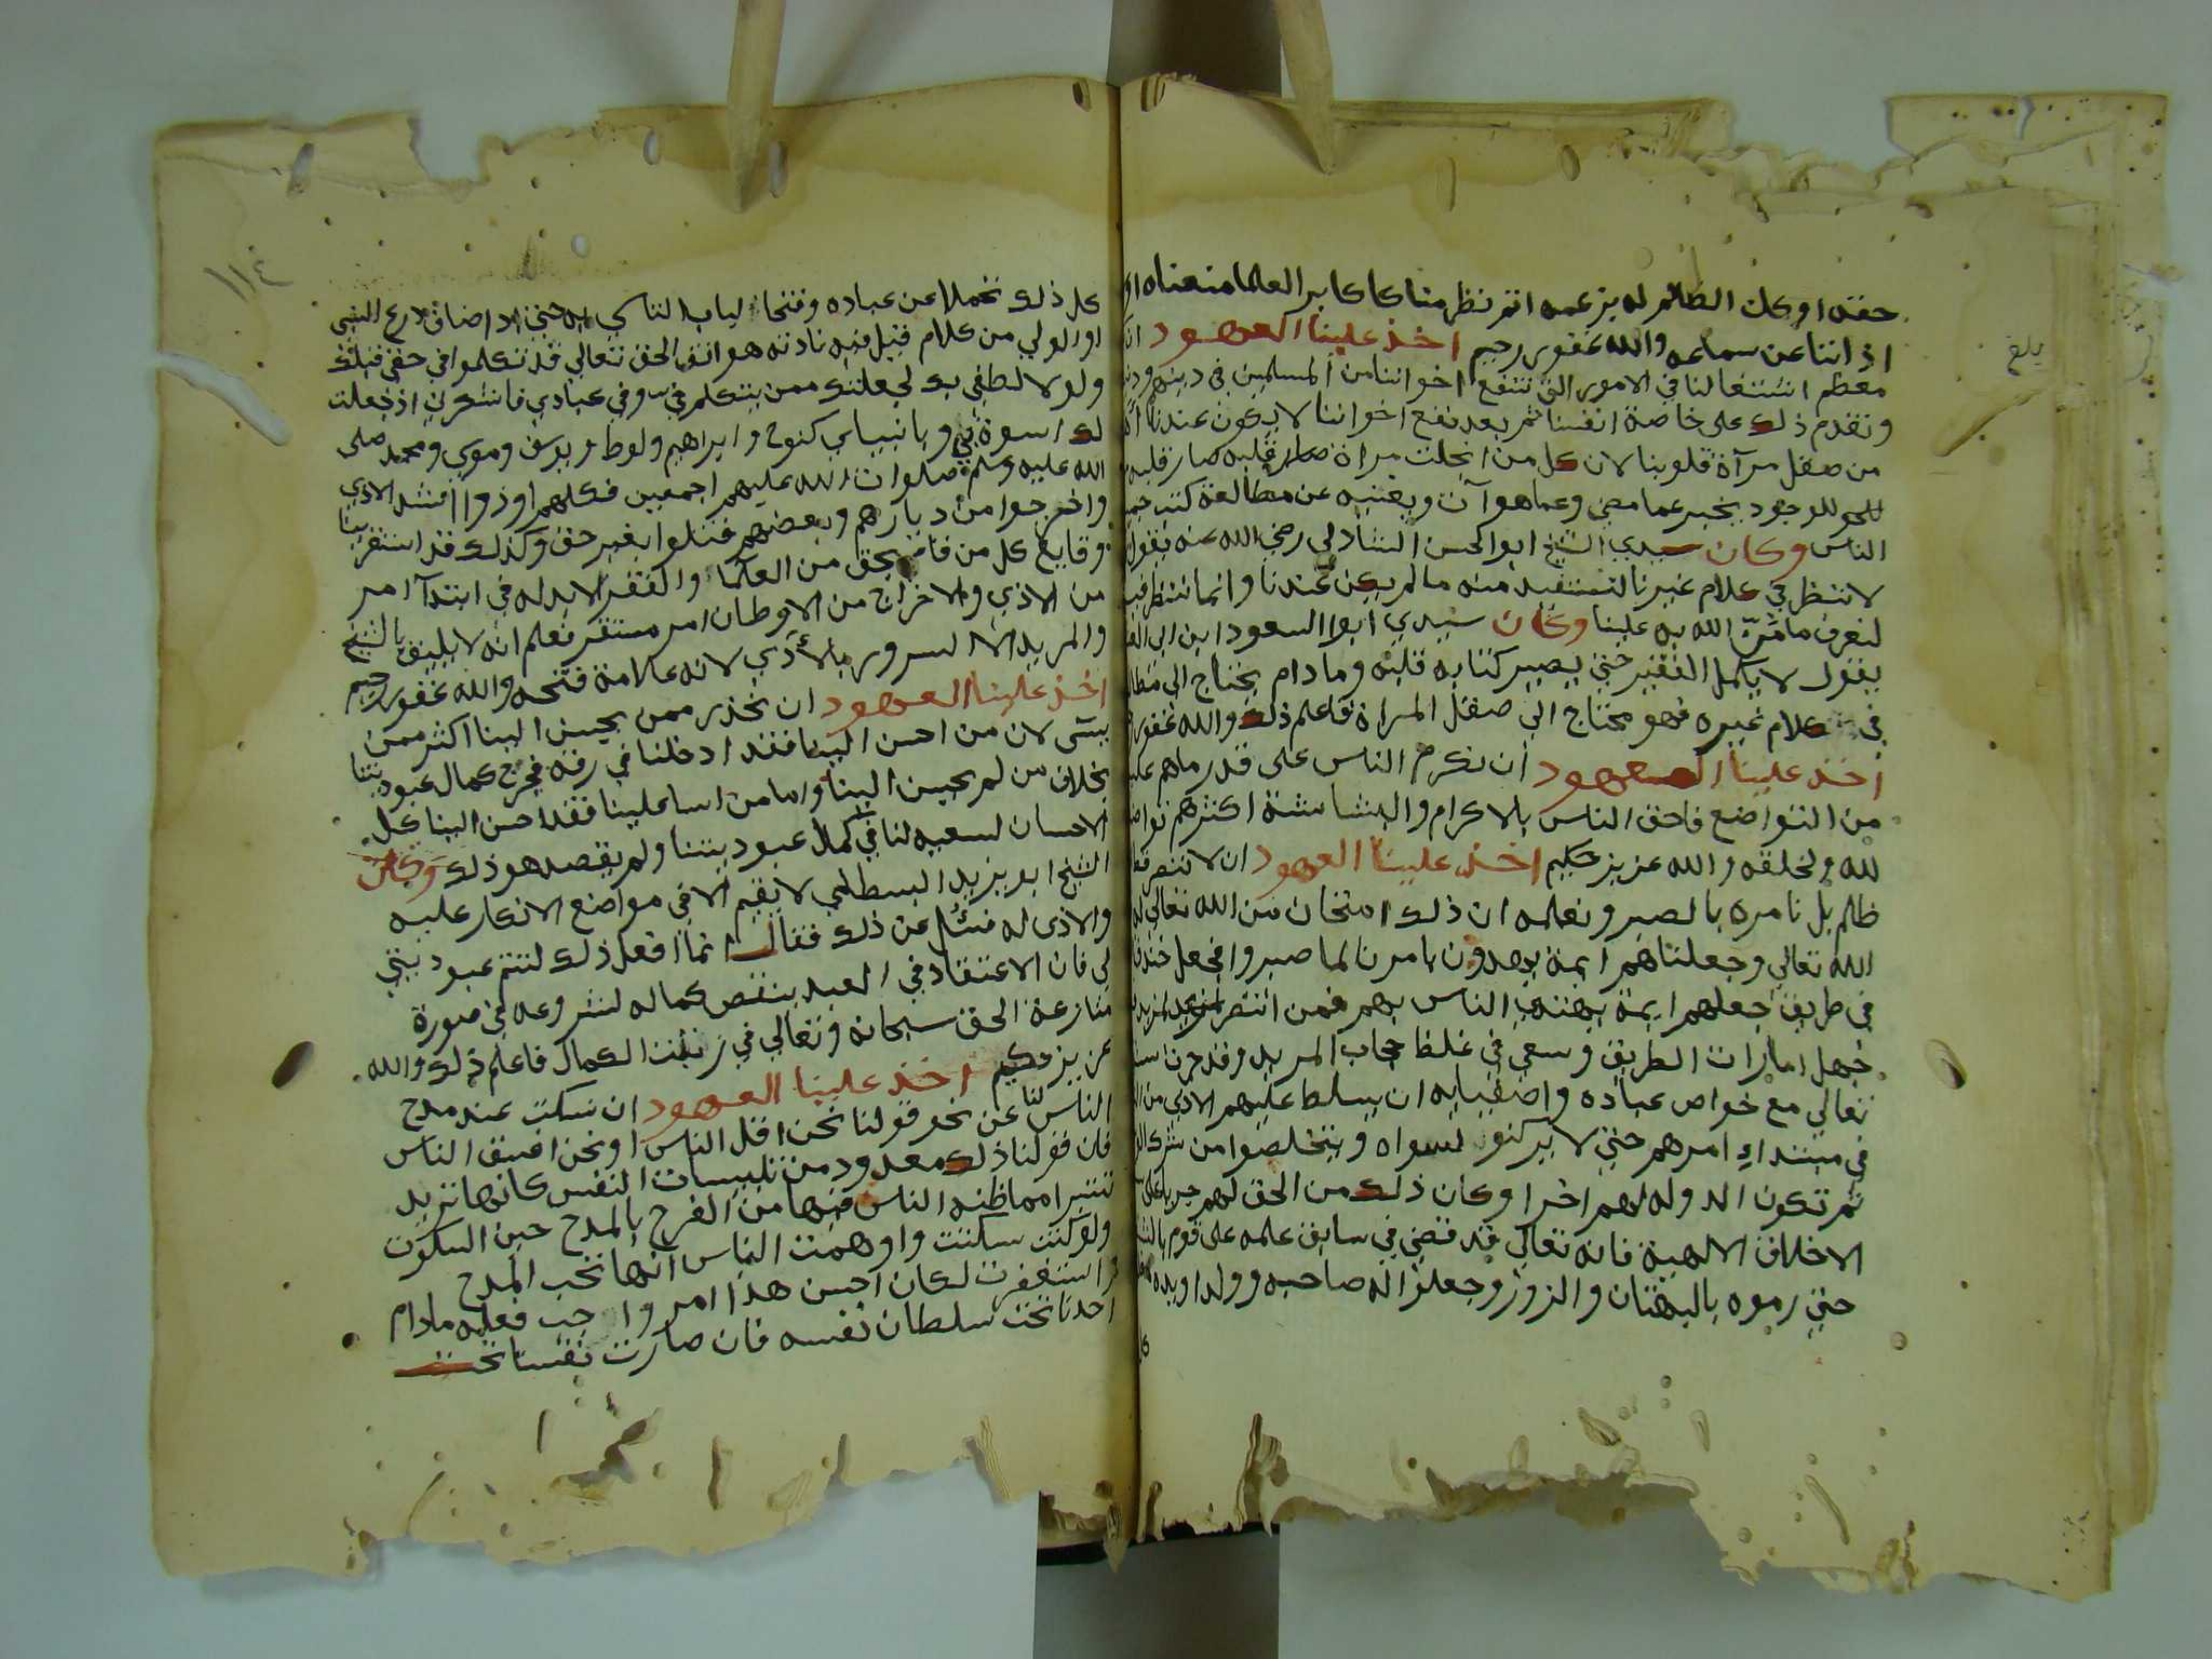 بلغ
حقه او كان الظالم له بزعمه اتم نظر منا كاكابر العلما منعناه او
اذاننا عن سماعه والله غفور رحيم اخذ علينا العهود
معظم اشتغالنا في الامور التي تنفع اخواننا من المسلمين في دينهم
ونقدم ذلك على خاصة انفسنا ثم بعد نفع اخواننا لا يكون عندنا
من صقل مرآة قلوبنا لان كل من انجلت مراة قلبه صار قلبه
للوجود يخبر عما مضى وعما هو آت ويغنيه عن مطالعة كتب
الناس وكان سيدي الشيخ ابو الحسن الشاذلي رضي الله عنه يقول
لا ننظر في كلام غيرنا لنستفيد منه ما لم يكن عندنا وانما ننظر فيه
لنعرف ما من الله به علينا وكان سيدي ابو السعود ابن ابي
يقول لا يكمل الفقير حتى يصير كتابه قلبه وما دام يحتاج الى
في كلام غيره فهو محتاج الى صقل المراة فاعلم ذلك والله غفور
اخذ علينا العهود ان نكرم الناس على قدر ما هم عليه
من التواضع فاحق الناس بالاكرام والبشاشة اكثرهم تواضعا
لله ولخلقه والله عزيز حكيم اخذ علينا العهود ان لا ننصر
ظالم بل نامره بالصبر ونعلمه ان ذلك امتحان من الله تعالى
الله تعالي وجعلناهم ايمة يهدون بامرنا لما صبروا فجعل
في طريق جعلهم ايمة يهتدي الناس بهم فمن انتصر
جهل امارات الطريق وسعى في غلظ حجاب المريد وقد جرت
تعالي مع خواص عباده واصفيايه ان يسلط عليهم الاذي من
في مبتداء امرهم حتى لا يركنوا لسواه ويتخلصوا من شرك
ثم تكون الدولة لهم اخرا وكان ذلك من الحق لهم جريا على
الاخلاق الالهية فانه تعالي قد قضى في سابق علمه على قوم
حتى رموه بالبهتان والزور وجعلوا له صاحبه وولدا ويده
١١٤
كل ذلك تحملا عن عباده وفتحا لباب التاسي به حتى اذا ضاق ذرع النبي
او الولي من كلام قيل فيه نادته هواتف الحق تعالي قد تكلموا في حقي قبلك
ولولا لطفي بك لجعلتك ممن يتكلم في وفي عبادي فاشكرني اذ جعلت
لك اسوة بي وبانبياي كنوح وابراهيم ولوط ويوسف وموسي ومحمد صلى
الله عليه وسلم صلوات الله عليهم اجمعين فكلهم اوذوا اشد الاذي
واخرجوا من ديارهم وبعضهم قتلوا بغير حق وكذلك قد استقرينا
وقايع كل من قام بحق من العلما والفقرا لا بد له في ابتدآ امره
من الاذي والاخراج من الاوطان امر مستقر فعلم انه لا يليق بالشيخ
والمريد الا السرور بالاذي لانه علامة فتحه والله غفور رحيم
اخذ علينا العهود ان نحذر ممن يحسن الينا اكثر ممن
يسى لان من احسن الينا فقد ادخلنا في رقه فجرح كمال عبوديتنا
بخلاف من لم يحسن الينا واما من اسا علينا فقد احسن الينا كل
الاحسان لسعيه لنا في كمال عبوديتنا ولم يقصد هو ذلك وكان
الشيخ ابو يزيد البسطامي لا يقيم الا في مواضع الانكار عليه
والاذى له فسئل عن ذلك فقال انما افعل ذلك لتتم عبوديتي
لي فان الاعتقاد في العبد ينقص كماله لشروعه في صورة
منازعة الحق سبحانه وتعالي في رتبت الكمال فاعلم ذلك والله
عزيز حكيم اخذ علينا العهود ان نسكت عند مدح
الناس لنا عن نحو قولنا نحن اقل الناس او نحن افسق الناس
فان قولنا ذلك معدود من تلبيسات النفس كانها تريد
تتبرا مما ظنه الناس فيها من الفرح بالمدح حين السكوت
ولو كنت سكتت واوهمت الناس انها تحب المدح
واستغفرت لكان احسن هذا امر واجب فعله مادام
احدنا تحت سلطان نفسه فان صارت نفسنا تحت